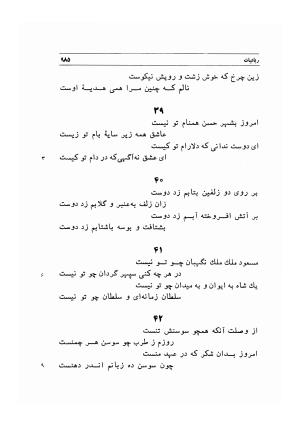 رباعیات
۹۸۵
زین چرخ که خوش زشت و رویش نیکوست
نالم کـه چنین مـرا همی هـدیـهٔ اوست
۳۹
امروز بشهر حسن همنام تو نیست
عاشق همه زیر سایهٔ بام تو زیست
ای دوست ندانی که دلارام تو کیست
ای عشق نه‌آگهی‌که در دام تو کیست
۳
۴۰
بر روی دو زلفین بتابم زد دوست
زان زلف به‌عنبر و گلابم زد دوست
بر آتش افروخته آبـم زد دوست
بشتافت و بوسه باشتابم زد دوست
۴۱
مسعود ملك ملك نگهبان چـو تـو نیست
در هر چه کنی سپهر گردان چو تو نیست
۶
یك شاه به ایوان و به میدان چو تو نیست
سلطان زمانه‌ای و سلطان چو تو نیست
۴۲
از وصلت آنکه همچو سوسنش تنست
روزم ز طرب چو سوسن هـر چمنست
امروز بـدان شکر که در عهد منست
چون سوسن ده زبانم انـدر دهنست
۹